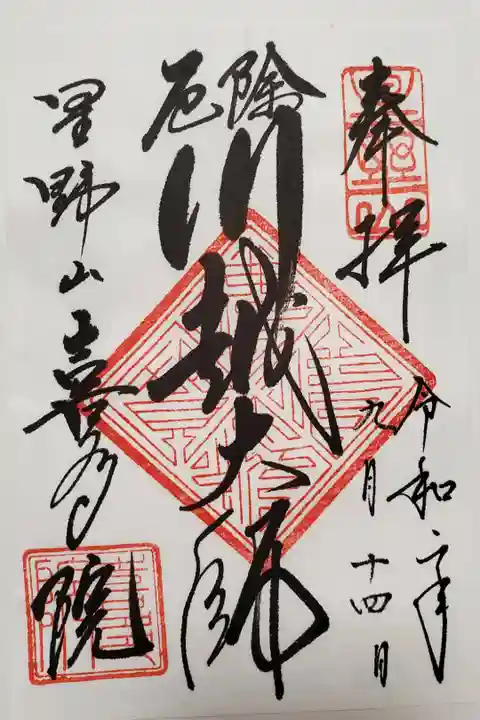 奉拝
令和二年
九月十四日
厄除
川越大師
星野山喜多院